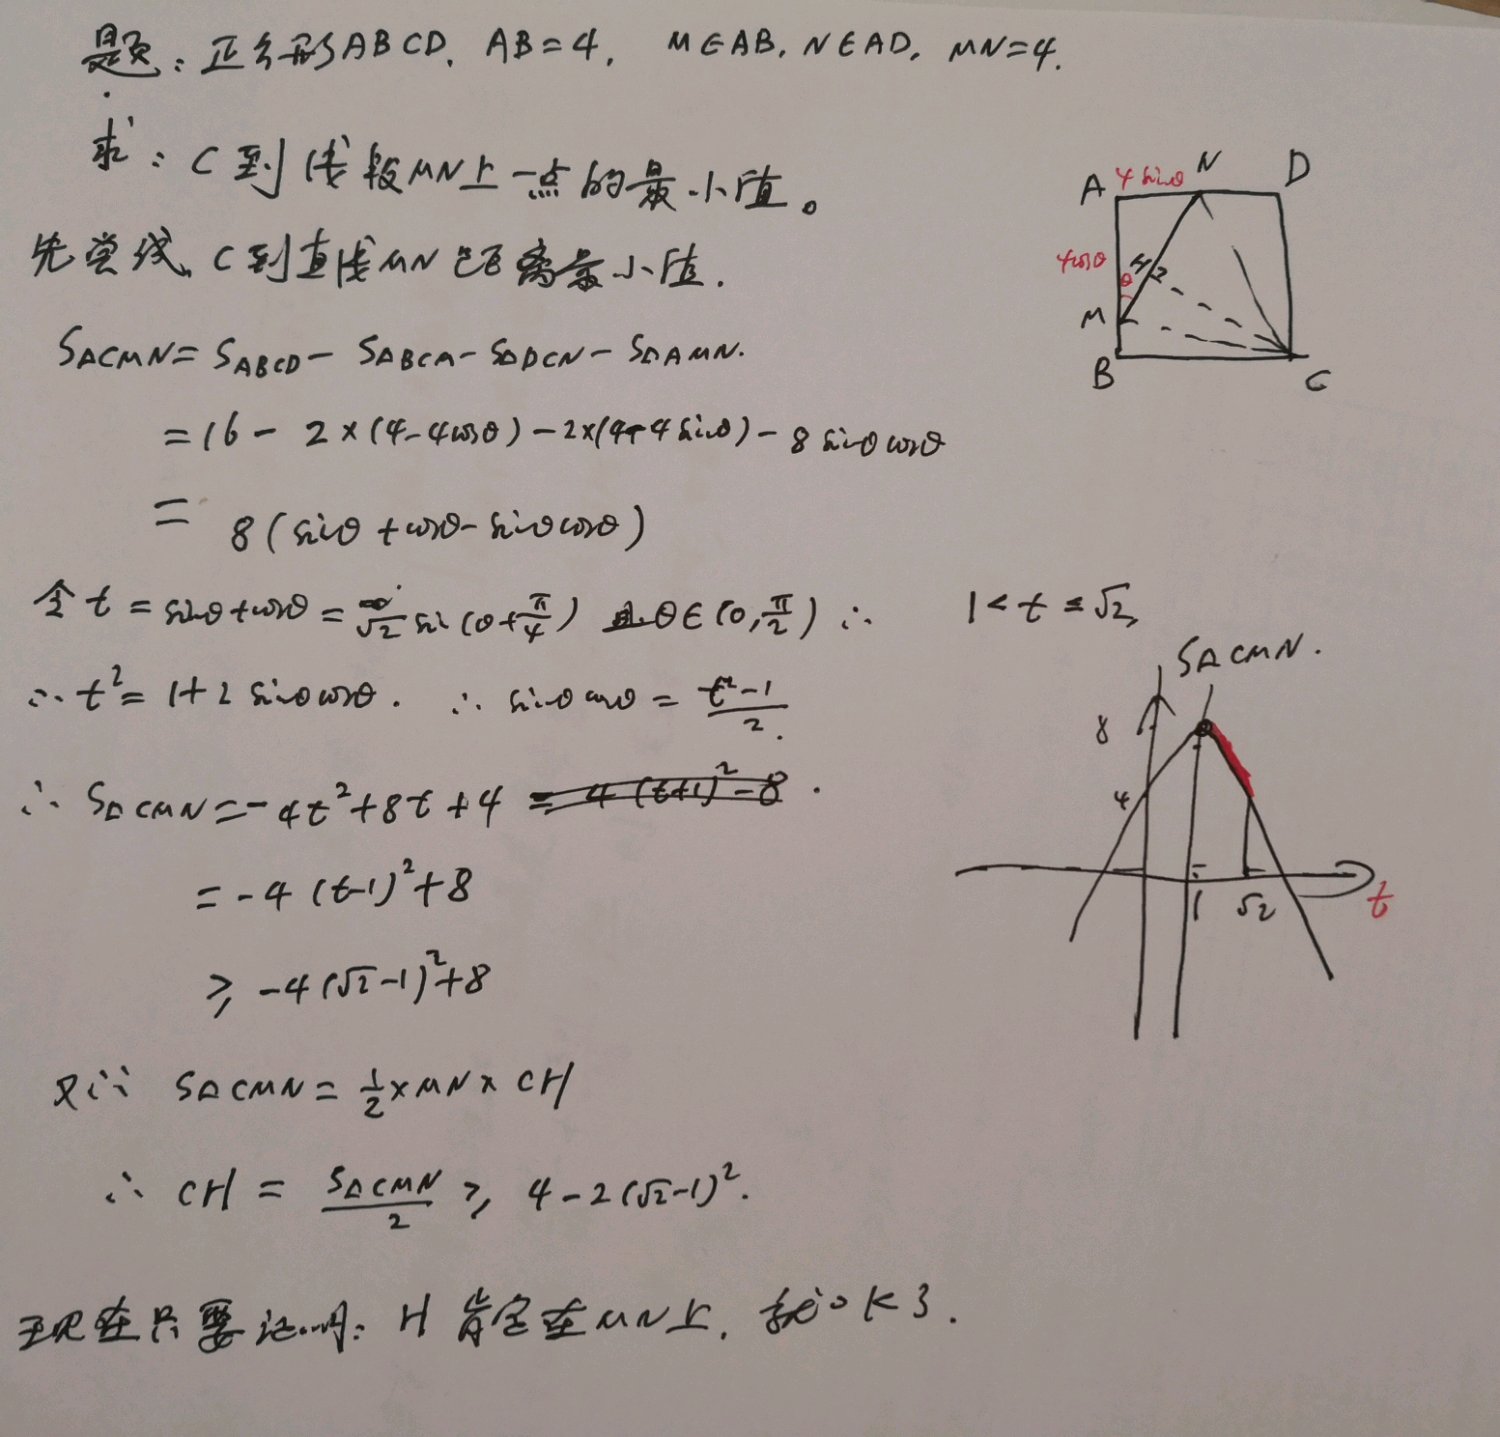 题：正方形ABCD，AB=4，M∈AB，N∈AD，MN=4．
求：C到线段MN上一点的最小值。
先尝试，C到直线MN距离最小值．
S△CMN=SABCD-S△BCM-S△DCN-S△AMN．
=16-2×(4-4cosθ)-2×(4-4sinθ)-8sinθcosθ
=8(sinθ+cosθ-sinθcosθ)
令t=sinθ+cosθ=√2sin(θ+π/4) 且θ∈(0,π/2) ∴ 1<t≤√2,
∴t²=1+2sinθcosθ．∴sinθcosθ=(t²-1)/2．
∴S△CMN=-4t²+8t+4 =4(t+1)²-8．
=-4(t-1)²+8
≥-4(√2-1)²+8
又∵S△CMN=1/2×MN×CH
∴CH=S△CMN/2≥4-2(√2-1)²．
现在只要证明：H肯定在MN上，就OK了．
A 4sinθ N D
4cosθ H
θ
M
B C
S△CMN．
8
4
1 √2 t